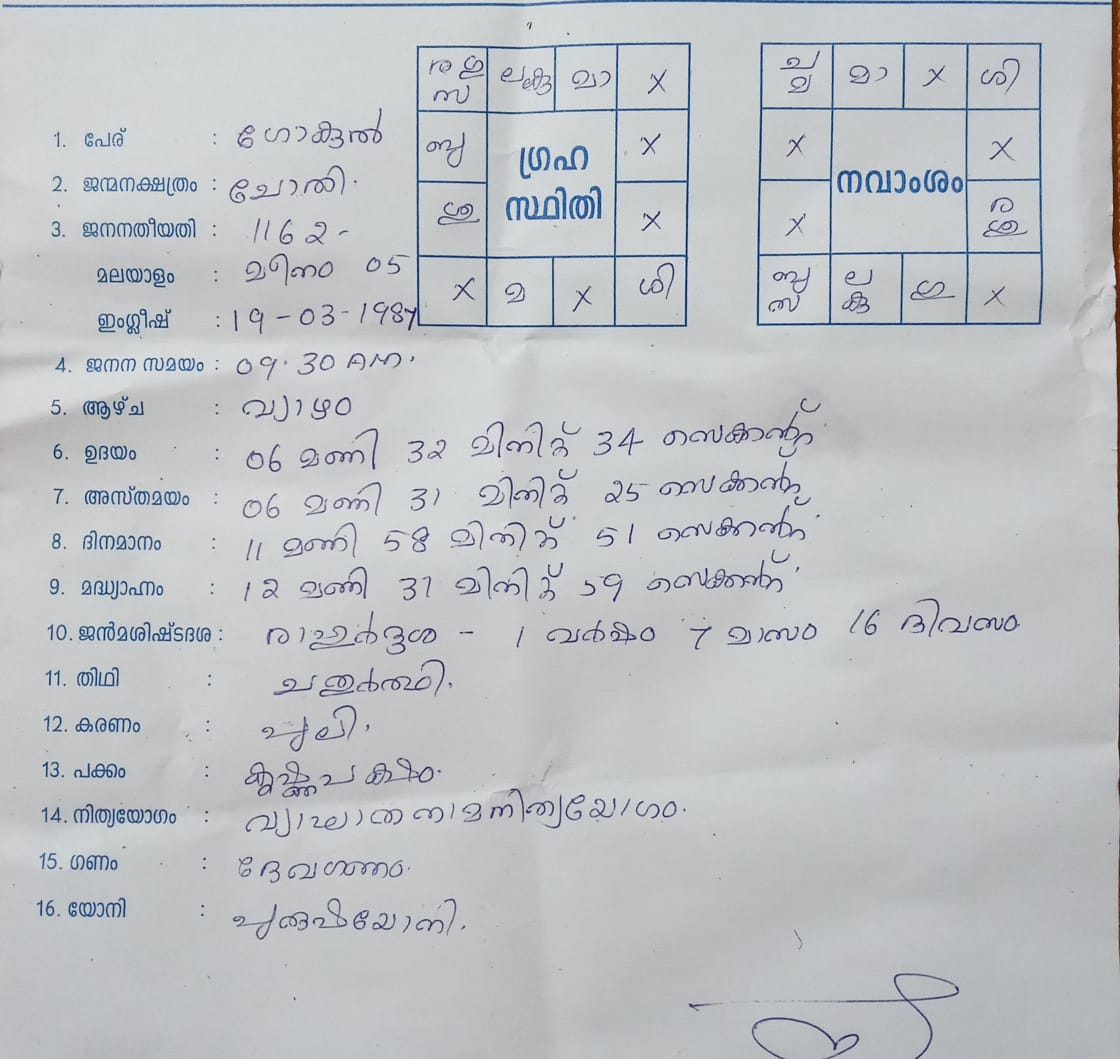 ര ഗു ലകു മാ x
സ
ബു ഗ്രഹ x
ശു സ്ഥിതി x
x മ x ശി
ച മാ x ശി
മ
x നവാംശം x
x ര
ശു
ബു ല ഗു x
സ കു
1. പേര് : ഗോകുൽ
2. ജന്മനക്ഷത്രം : ചോതി.
3. ജനനതീയതി : 1162 -
മലയാളം : മീനം 05
ഇംഗ്ലീഷ് : 19-03-1987
4. ജനന സമയം : 09.30 Am.
5. ആഴ്ച : വ്യാഴം
6. ഉദയം : 06 മണി 32 മിനിറ്റ് 34 സെക്കന്റ്
7. അസ്തമയം : 06 മണി 31 മിനിറ്റ് 25 സെക്കന്റ്
8. ദിനമാനം : 11 മണി 58 മിനിറ്റ് 51 സെക്കന്റ്
9. മദ്ധ്യാഹ്നം : 12 മണി 31 മിനിറ്റ് 59 സെക്കന്റ്
10. ജൻമശിഷ്ടദശ : രാഹുർദ്ദശ - 1 വർഷം 7 മാസം 16 ദിവസം
11. തിഥി : ചതുർത്ഥി.
12. കരണം : പുലി.
13. പക്കം : കൃഷ്ണപക്ഷം.
14. നിത്യയോഗം : വ്യാഘാതനാമനിത്യയോഗം.
15. ഗണം : ദേവഗണം.
16. യോനി : പുരുഷയോനി.